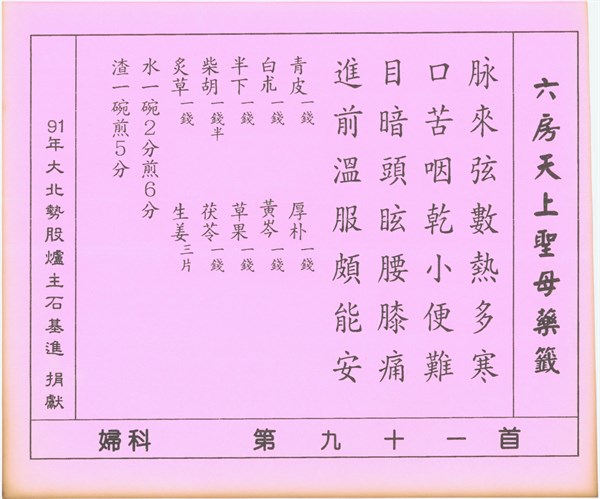 六房天上聖母藥籤
脉來弦數熱多寒
口苦咽乾小便難
目暗頭眩腰膝痛
進前溫服頗能安
青皮一錢 厚朴一錢
白朮一錢 黃岑一錢
半下一錢 草果一錢
柴胡一錢半 茯苓一錢
炙草一錢 生姜三片
水一碗2分煎6分
渣一碗煎5分
91年大北勢股爐主石基進 捐獻
婦科 第九十一首